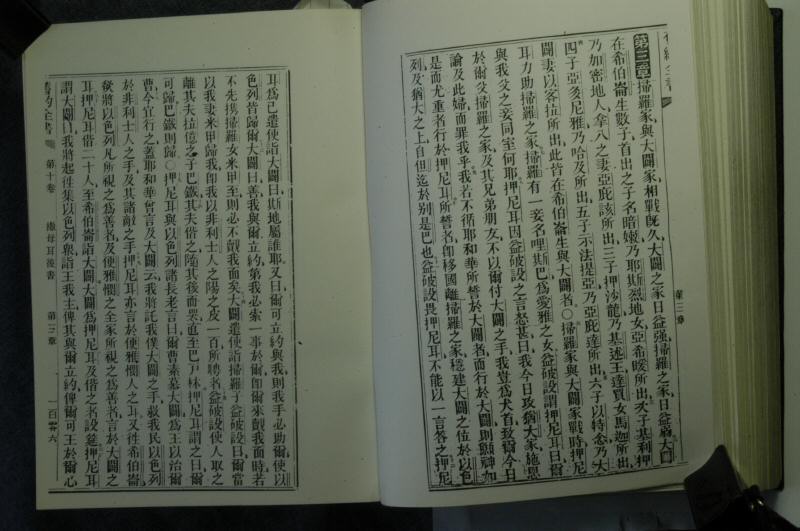 第三章掃羅家與大闢家相戰旣久大闢之家日益強掃羅之家日益弱大闢
在希伯崙生數子首出之子名暗嫩乃耶斯烈地女亞希暖所出次子基利押
乃加密地人拿八之妻亞庇該所出三子押沙龍乃基述王達買女馬迦所出
四子亞多尼雅乃哈及所出五子示法提亞乃亞庇達所出六子以特念乃大
闢妻以客拉所出此皆在希伯崙生與大闢者○掃羅家與大闢家戰時押尼
耳力助掃羅之家掃羅有一妾名哩斯巴爲愛雅之女益破設謂押尼耳曰爾
與我父之妾同室何耶押尼耳因益破設之言怒甚曰我今日攻猶大家施恩
於爾父掃羅之家及其兄弟朋友不以爾付大闢之手我豈爲犬首致爾今日
論及此婦而罪我乎我若不循耶和華所誓於大闢者而行於大闢則願神如
是而尤重者行於押尼耳所誓者卽移國離掃羅之家穩建大闢之位於以色
列及猶大之上自但迄於别是巴也益破設畏押尼耳不能以一言答之押尼
耳爲己遣使詣大闢曰斯地屬誰耶又曰爾可立約與我則我手必助爾使以
色列皆歸爾大闢曰善我與爾立約第我必索一事於爾卽爾來覿我面時若
不先攜掃羅女米甲至則必不覿我面矣大闢遣使詣掃羅子益破設曰爾當
以我妻米甲歸我卽我以非利士人之陽之皮一百所聘者益破設使人取之
離其夫拉億之子巴鐵其夫偕之隨其後而哭直至巴戶林押尼耳謂之曰爾
可歸巴鐵則歸○押尼耳與以色列諸長老言曰爾曹素慕大闢爲王以治爾
曹今宜行之蓋耶和華曾言及大闢云我將託我僕大闢之手救我民以色列
於非利士人之手及其諸敵之手押尼耳亦言於便雅憫人之耳又徃希伯崙
欲將以色列凡所視之爲善者及便雅憫之全家所視之爲善者言於大闢之
耳押尼耳偕二十人至希伯崙詣大闢大闢爲押尼耳及偕之者設筵押尼耳
謂大闢曰我將起徃集以色列衆詣王我主俾其與爾立約俾爾可王於爾心
舊約全書 第十卷 撒母耳後書 第三章 一百零六